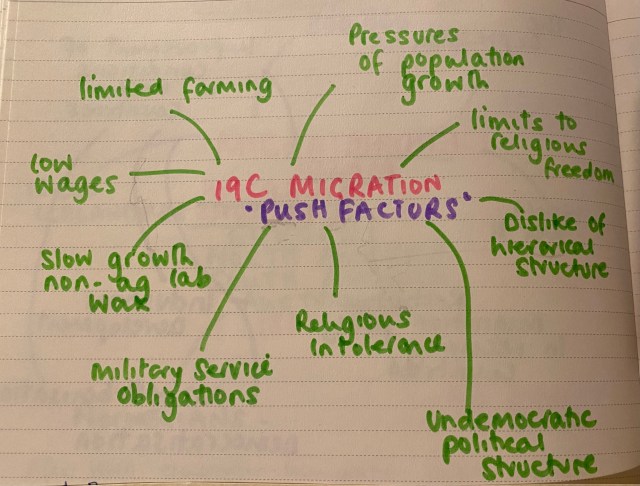 Pressures
of population
growth
limited farming
limits to
religious
freedom
low
wages
19C MIGRATION
"PUSH FACTORS"
Dislike of
hierarical
structure
Slow growth
non-ag lab
Religious
Intolerance
Military Service
Obligations
Undemocratic
political
structure